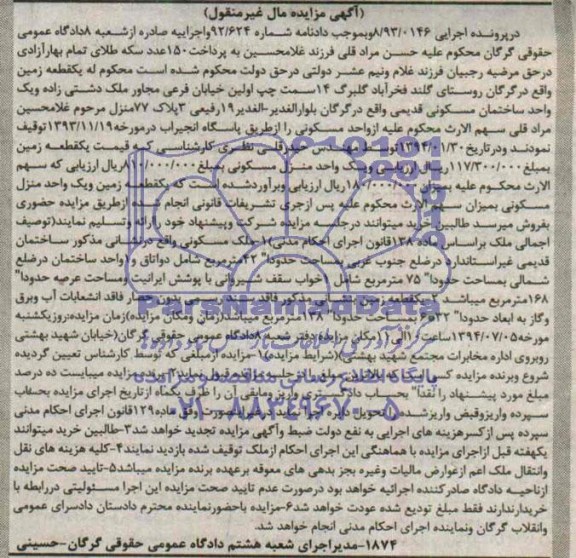 (آگهی مزایده مال غیرمنقول)
درپرونده اجرایی ۸/۹۳/۰۱۴۶وبموجب دادنامه شماره ۹۲/۶۲۴واجراییه صادره ازشعبه ۸دادگاه عمومی
حقوقی گرگان محکوم علیه حسن مراد قلی فرزند غلامحسین به پرداخت۱۵۰عدد سکه طلای تمام بهارآزادی
درحق مرضیه رجبیان فرزند غلام ونیم عشر دولتی درحق دولت محکوم شده است محکوم له یکقطعه زمین
واقع درگرگان روستای گلند فخرآباد گلبرگ ۱۴سمت چپ اولین خیابان فرعی مجاور ملک دشتی زاده ویک
واحد ساختمان مسکونی قدیمی واقع درگرگان بلوارالغدیر-الغدیر۱۹رفیعی ۳پلاک ۷۷منزل مرحوم غلامحسین
مراد قلی سهم الارث محکوم علیه ازواحد مسکونی را ازطریق پاسگاه انجیراب درمورخه۱۳۹۳/۱۱/۱۹توقیف
نمودند ودرتاریخ۱۳۹۴/۰۱/۳۰توسط مهندس حیدرقلی نظری کارشناسی که قیمت یکقطعه زمین
بمبلغ۱۱۷/۳۰۰/۰۰۰ریال ارزیابی ویک واحد منزل مسکونی بمبلغ۸۱۰/۰۰۰/۰۰۰ریال ارزیابی که سهم
الارث محکوم علیه بمیزان ۱۸۰/۰۰۰/۰۰۰ریال ارزیابی وبرآوردشده است که یکقطعه زمین ویک واحد منزل
مسکونی بمیزان سهم الارث محکوم علیه پس ازجری تشریفات قانونی انجام شده ازطریق مزایده حضوری
بفروش میرسد طالبین خرید میتوانند درجلسه مزایده شرکت وپیشنهاد خود را ارائه وتسلیم نمایند(توصیف
اجمالی ملک براساس ماده ۱۳۸قانون اجرای احکام مدنی)۱-ملک مسکونی واقع درنشانی مذکور ساختمان
قدیمی غیراستاندارد درضلع جنوب غربی بمساحت حدودا" ۴۲مترمربع شامل دواتاق و۱واحد ساختمان درضلع
شمالی بمساحت حدودا" ۷۵ مترمربع شامل خواب سقف شیروانی با پوشش ایرانیت ومساحت عرصه حدودا"
۱۶۸مترمربع میباشد ۲-یکقطعه زمین نشانی مذکور فاقد سند رسمی بدون حصار فاقد انشعابات آب وبرق
وگاز به ابعاد حدودا" بمساحت حدودا" ۱۳۸مترمربع میباشد(زمان ومکان مزایده)زمان مزایده:روزیکشنبه
مورخه۱۳۹۴/۰۷/۰۵ساعت مکان مزایده دفتر شعبه ۸دادگاه عمومی حقوقی گرگان(خیابان شهید بهشتی
روبروی اداره مخابرات مجتمع شهید بهشتی)(شرایط مزایده)۱-مزایده ازمبلغی که توسط کارشناس تعیین گردیده
شروع وبرنده مزایده کسی است که بالاترین مبلغ را درجلسه مزایده قبول نماید۲-برنده مزایده میبایست ده درصد
مبلغ مورد پیشنهاد را نقدا" بحساب دادگستری واریز ومابقی آن را ظرف یکماه ازتاریخ اجرای مزایده بحساب
سپرده واریزوقبض واریزشده را تحویل دایره اجرا نماید درغیراینصورت وفق ماده۱۲۹قانون اجرای احکام مدنی
سپرده پس ازکسرهزینه های اجرایی به نفع دولت ضبط وآگهی مزایده تجدید خواهد شد۳-طالبین خرید میتوانند
یکهفته قبل ازاجرای مزایده با هماهنگی این اجرای احکام ازملک توقیف شده بازدید نمایند۴-کلیه هزینه های نقل
وانتقال ملک اعم ازعوارض مالیات وغیره بجز بدهی های معوقه برعهده برنده مزایده میباشد۵-تایید صحت مزایده
ازناحیه دادگاه صادرکننده اجرائیه خواهد بود درصورت عدم تایید صحت مزایده این اجرا مسئولیتی دررابطه با
خریدارندارند فقط مبلغ تودیع شده عودت خواهد شد۶-مزایده باحضورنماینده محترم دادستان دادسرای عمومی
وانقلاب گرگان ونماینده اجرای احکام مدنی انجام خواهد شد.
۱۸۷۴-مدیراجرای شعبه هشتم دادگاه عمومی حقوقی گرگان-حسینی
ParsNamadData
پایگاه اطلاع رسانی مناقصه و مزایده
۰۲۱-۸۸۳۴۹۶۷۰-۵